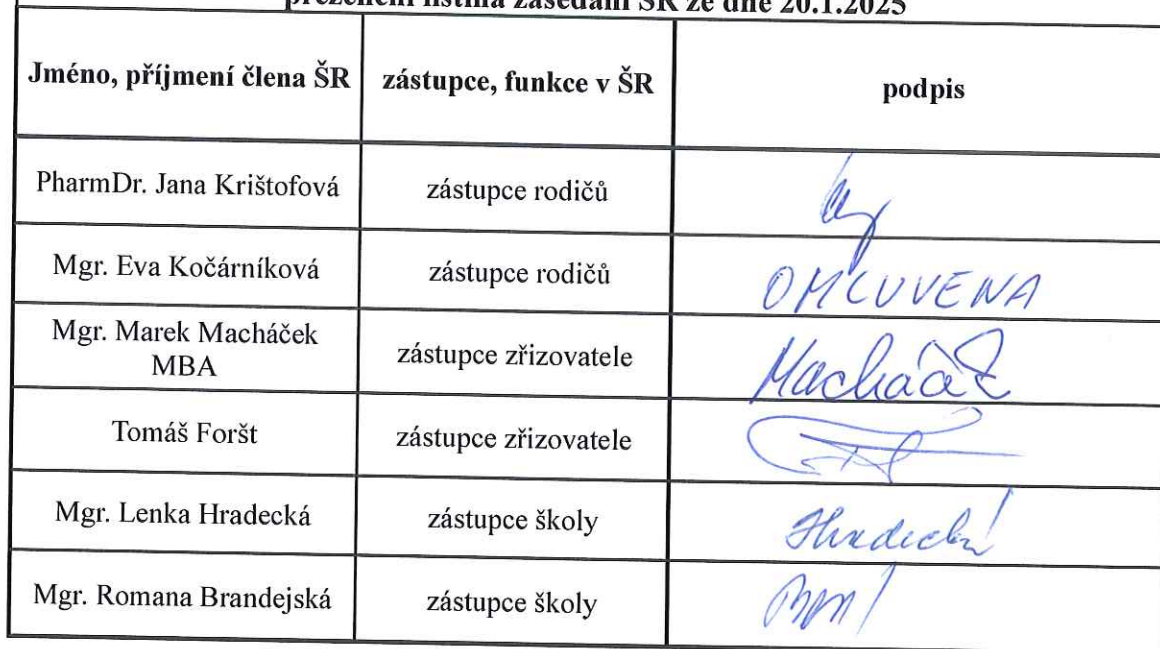 prezenční listina zasedání ŠR ze dne 20.1.2025
Jméno, příjmení člena ŠR zástupce, funkce v ŠR podpis
PharmDr. Jana Krištofová zástupce rodičů
Mgr. Eva Kočárníková zástupce rodičů OMLUVENA
Mgr. Marek Macháček
MBA zástupce zřizovatele Macháček
Tomáš Foršt zástupce zřizovatele
Mgr. Lenka Hradecká zástupce školy Hradecká
Mgr. Romana Brandejská zástupce školy